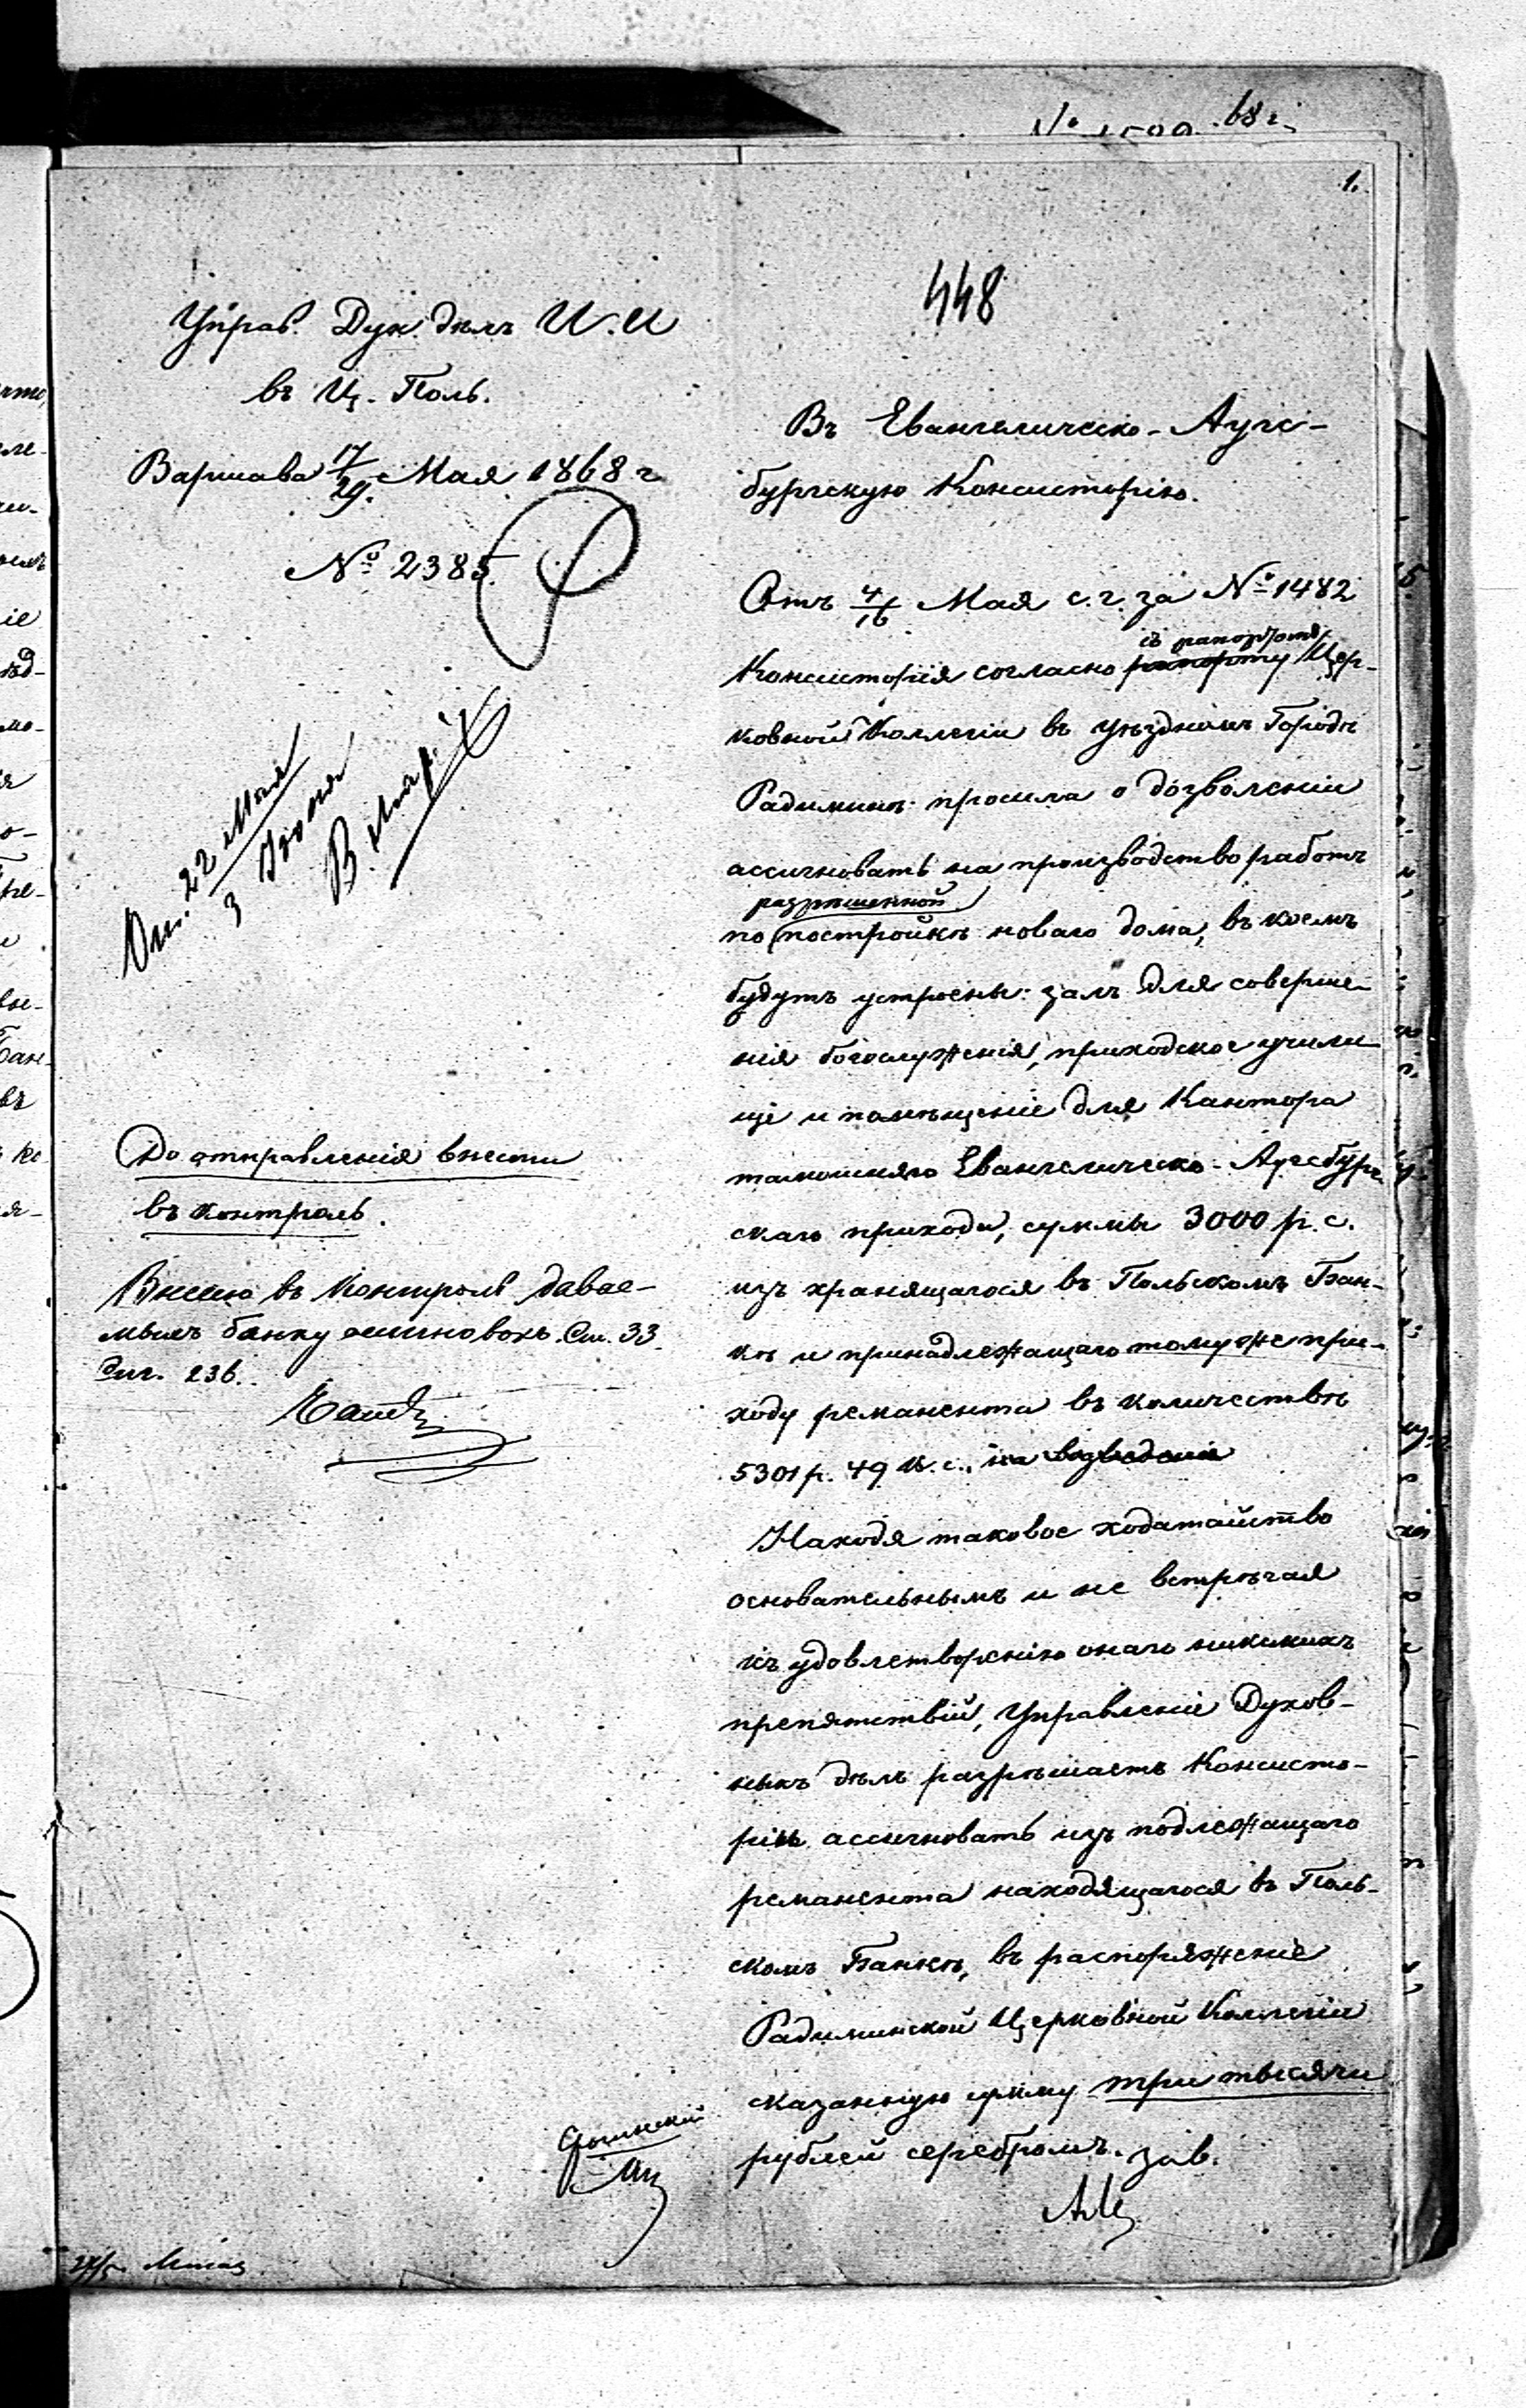 68 г.
1.
448
Управ. Дух. дѣлъ И. И
въ Ц. Поль.
Варшава 17/29 Мая 1868 г
№ 2385.
От. 22 Мая
3 Іюня
До отправленія внести
въ контроль.
Внесено въ Контроль давае-
мыхъ банку ассигновокъ. Ст. 33
Въ Евангелическо-Аугс-
бургскую Консисторію.
Отъ 4/16 Мая с. г. за № 1482
съ рапортомъ
Консисторія согласно рапорту Цер-
ковной Коллегіи въ уѣздномъ Городѣ
Радиминѣ просила о дозволеніи
ассигновать на производство работъ
разрѣшенной
по постройкѣ новаго дома, въ коемъ
будутъ устроены: залъ для соверше-
нія богослуженія, приходское учили-
ще и помѣщеніе для Кантора
тамошняго Евангелическо-Аугсбург-
скаго прихода, суммы 3000 р. с.
изъ хранящагося въ Польскомъ Бан-
кѣ и принадлежащаго тому же при-
ходу реманента въ количествѣ
5301 р. 49 к. с., на возведеніе
Находя таковое ходатайство
основательнымъ и не встрѣчая
къ удовлетворенію онаго никакихъ
препятствій, Управленіе Духов-
ныхъ дѣлъ разрѣшаетъ Консисто-
ріи ассигновать изъ подлежащаго
реманента находящагося въ Поль-
скомъ Банкѣ, въ распоряженіе
Радиминской Церковной Коллегіи
сказанную сумму три тысячи
рублей серебромъ.